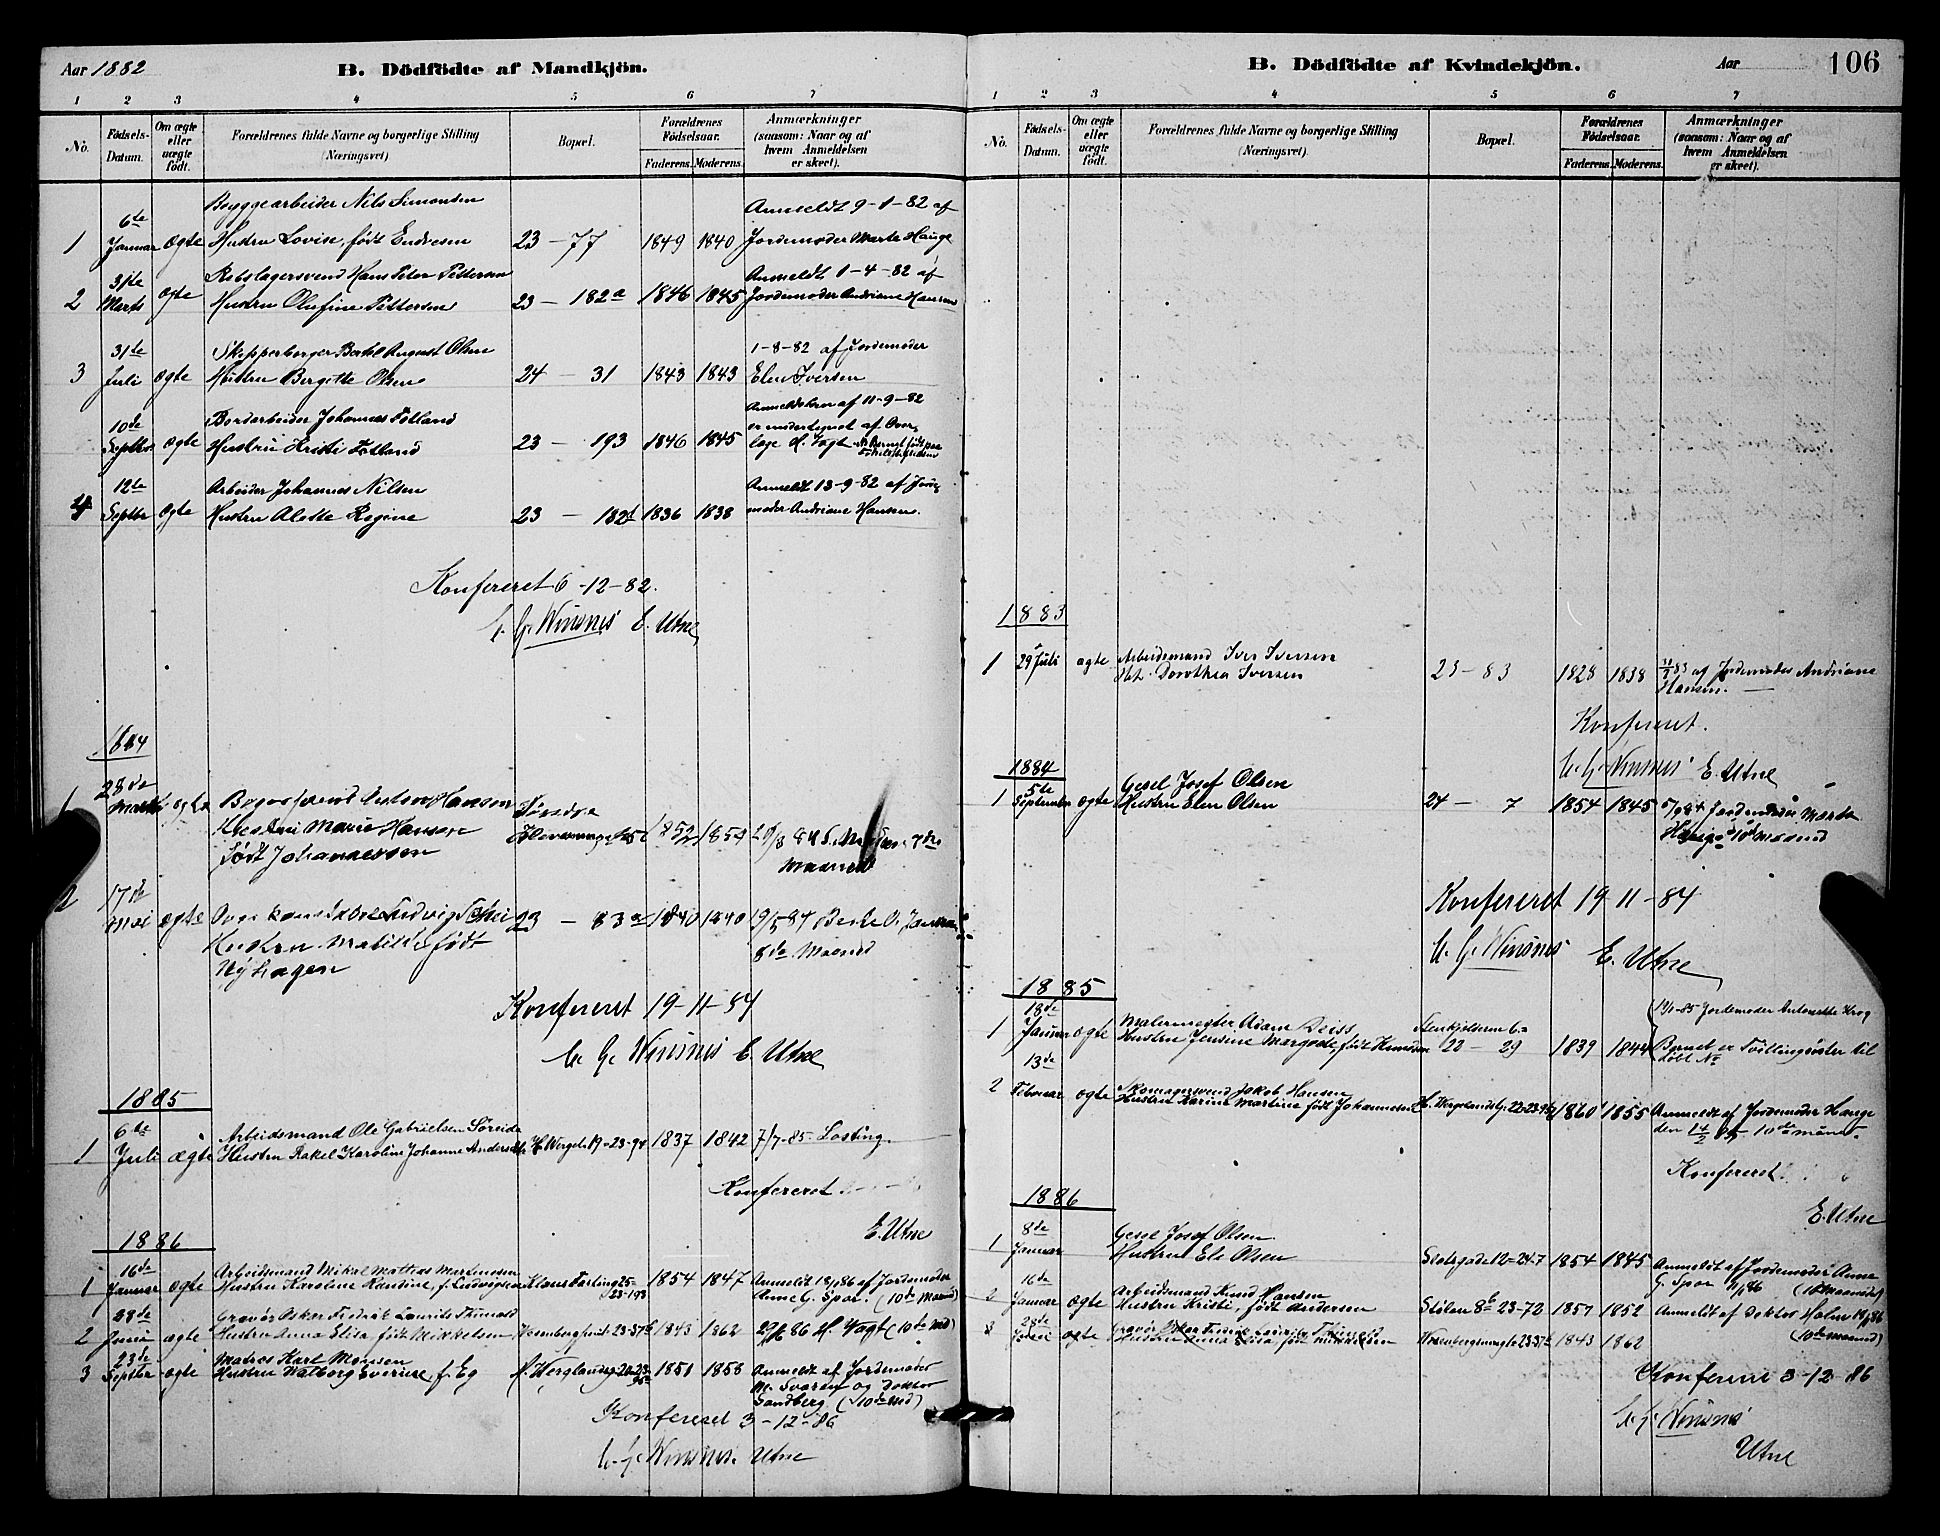 Aar 1882
B. Dödfödte af Mandkjön.
1 2 3 4 5 6 7
No.
Födsels-Datum.
Om ægte eller uægte födt.
Forældrenes fulde Navne og borgerlige Stilling
(Næringsvei)
Bopæl.
Forældrenes Födselsaar.
Faderens. Moderens.
Anmærkninger
(saasom: Naar og af
hvem Anmeldelsen
er skeet).
6te Byggearbeider Nils Simonsen Anmeldt 9-1-82 af
1 Januar ægte Hustru Lovise, født Endresen 23 - 77 1849 1840 Jordemoder Marte Hauge
31te Rebslagersvend Hans Peter Pettersen Anmeldt 1-4-82 af
2 Marts ægte Hustru Olufine Pettersen 23 - 182a 1846 1845 Jordemoder Andriane Hansen
31te Skipperborger Bertel August Olsen 1-8-82 af Jordemoder
3 Juli ægte Hustru Bergitte Olsen 24 - 31 1843 1843 Elen Iversen
10de Bordarbeider Johannes Fotland Anmeldelsen af 11-9-82
er undertegnet af Over-
Septbr ægte Hustru Kristi Fotland 23 - 193 1846 1845 læge H. Vogt
12te Arbeider Johannes Nilsen Anmeldt 13-9-82 af Jorde-
4 Septbr ægte Hustru Alette Regine 23 - 182d 1836 1838 moder Andriane Hansen.
Konfereret 6-12-82.
C. G. Winsnes E. Utne
1884
28de
1 Marts ægte Hansen Søndre
Hustru Marie Hansen 1852 1859
født Johannessen Maaned
17de
2 Mai ægte Ludvig 23 - 83a 1840 1840 19/5 84
Hustru Matilde født 8de Maaned
Nyhagen
Konfereret 19-11-84
C. G. Winsnes E. Utne
1885
6te Arbeidsmand Ole Gabrielsen Søreide
1 Juli ægte Hustru Rakel Karoline Johanne H. Wergels 19-23-94 1837 1842 7/7-85 Losting.
Konfereret
E. Utne
1886
16de Arbeidsmand Mikal Mathias Martinusen
1 Januar ægte Hustru Karoline Randine, f. Ludvigsen Klaus 25- 1854 1847 Anmeldt 18/1 86 af Jordemoder
23-193 Anne G. Spor. (10de Maaned)
28de Gravør Oskar Fredrik Laurits
2 Juni ægte Hustru Anna Elisa født Mikkelsen 23-37b 1843 1862 29/6 86 H. Vogt (10de Md)
23de Matros Karl Monsen
3 Septbr ægte Hustru Walborg Severine, f. Eg H. Werglandsg 1851 1858 Anmeldt af Jordemoder
M. Svaren og Doktor
Sandberg (10de Md)
Konfereret 3-12-86
C. G. Winsnes. Utne
B. Dödfödte af Kvindekjön.
Aar
106
1 2 3 4 5 6 7
No.
Födsels-Datum.
Om ægte eller uægte födt.
Forældrenes fulde Navne og borgerlige Stilling
(Næringsvei).
Bopæl.
Forældrenes Födselsaar.
Faderens. Moderens.
Anmærkninger
(saasom: Naar og af
hvem Anmeldelsen
er skeet).
1883
1 29 Juli ægte Arbeidsmand Iver Iversen 23 - 83 1828 1838 af Jordemoder Andriane
Hst. Dorothea Iversen Hansen.
Konfereret.
C. G. Winsnes E. Utne
1884
5te Gesel Josef Olsen
1 September ægte Hustru Elen Olsen 24 - 7 1854 1845 5/9 84 Jordemoder Marte
Hauge 10de Maaned
Konfereret 19-11-84
C. G. Winsnes E. Utne
1885
18de Malermester Adam Stenkjelderen 6= 19/1-85 Jordemoder Antonette Krog
1 Januar ægte Hustru Jensine Margrete, født Knudsen 22 - 29 1839 1844 Barnet er Tvillingsøster til
døbt No
13de Skomagersvend Jakob Hansen
2 Februar ægte Hustru Karine Martine født Johannesen H. Wergelandsg. 1860 1855 Anmeldt af Jordemoder Hauge
den 14/2 85 10de Maaned.
Konfereret
E. Utne
1886
8de Gesel Josef Olsen
1 Januar Hustru Ele Olsen Slotsgade 12=24-7 1854 1845 Anmeldt af Jordemoder Anne
G. Spor 9/1 86 (10de Maaned)
16de Arbeidsmand Knud Hansen
2 Januar ægte Hustru Kristi, født Andersen Stølen 8b 23-72 1857 1852 Anmeldt af Doktor Holm
28de (10de Maaned)
3 Juni ægte 23-37b 1843 1862
Konfereret 3-12-86
C. G. Winsnes
Utne